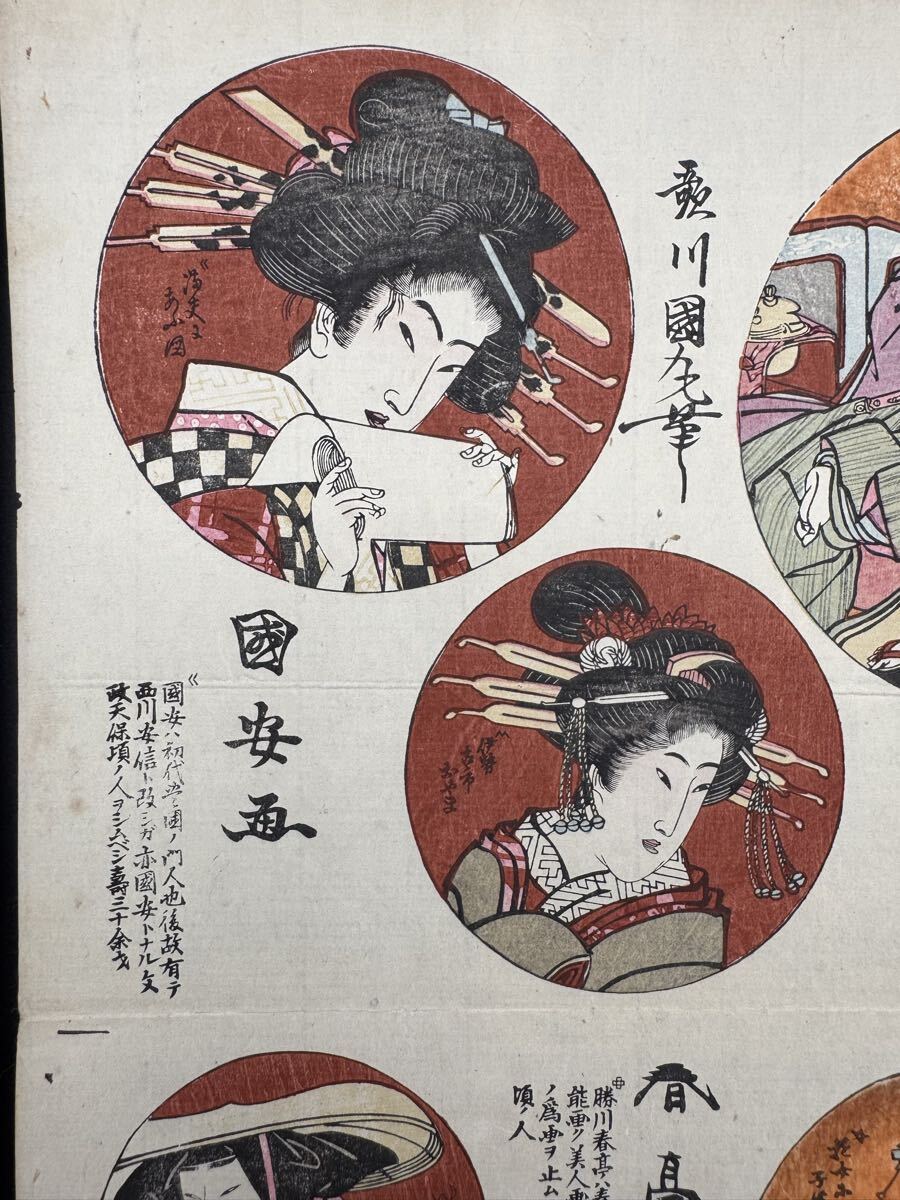 歌川國丸筆
國安画
國安ハ初代豊國ノ門人也後故有テ
西川安信ト改シガ亦國安トナル文
政天保頃ノ人ヲシムベシ壽三十余才
伊勢
古市
おやま
春亭
勝川春亭ハ春
能画ク美人画
ノ為画ヲ止ム
頃ノ人